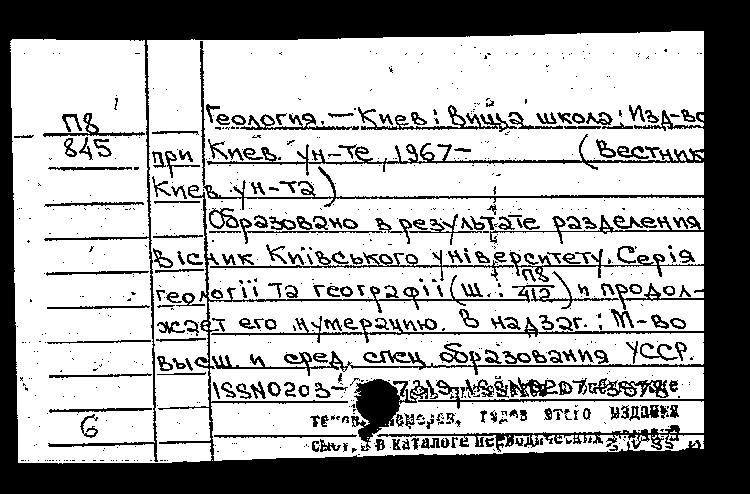 П8
845
Геология. — Киев : Вища школа : Изд-во
при Киев. ун-те, 1967— (Вестник
Киев. ун-та)
Образовано в результате разделения
Вісник Київського університету. Серія
геології та географії (Ш.: П8/412) и продол-
жает его нумерацию. В надзаг.: М-во
высш. и сред. спец. образования УССР.
ISSN0203-
номеров, годов этого издания
смот. в каталоге периодических
6